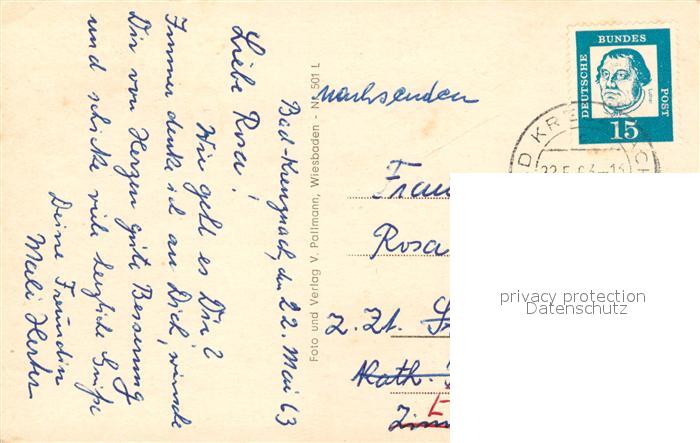 Bad-Kreuznach, den 22. Mai 63
Liebe Rosa!
Wie geht es Dir?
Immer denke ich an Dich, wünsche
Dir von Herzen gute Besserung
und schicke viele herzliche Grüße
Deine Freundin
Foto und Verlag V. Pollmann, Wiesbaden - Nr. 501 L
nachsenden
DEUTSCHE
BUNDES
POST
Luther
15
D KR
22.5.63-1
Frau
Rosa
z. Zt.
Kath.
privacy protection
Datenschutz